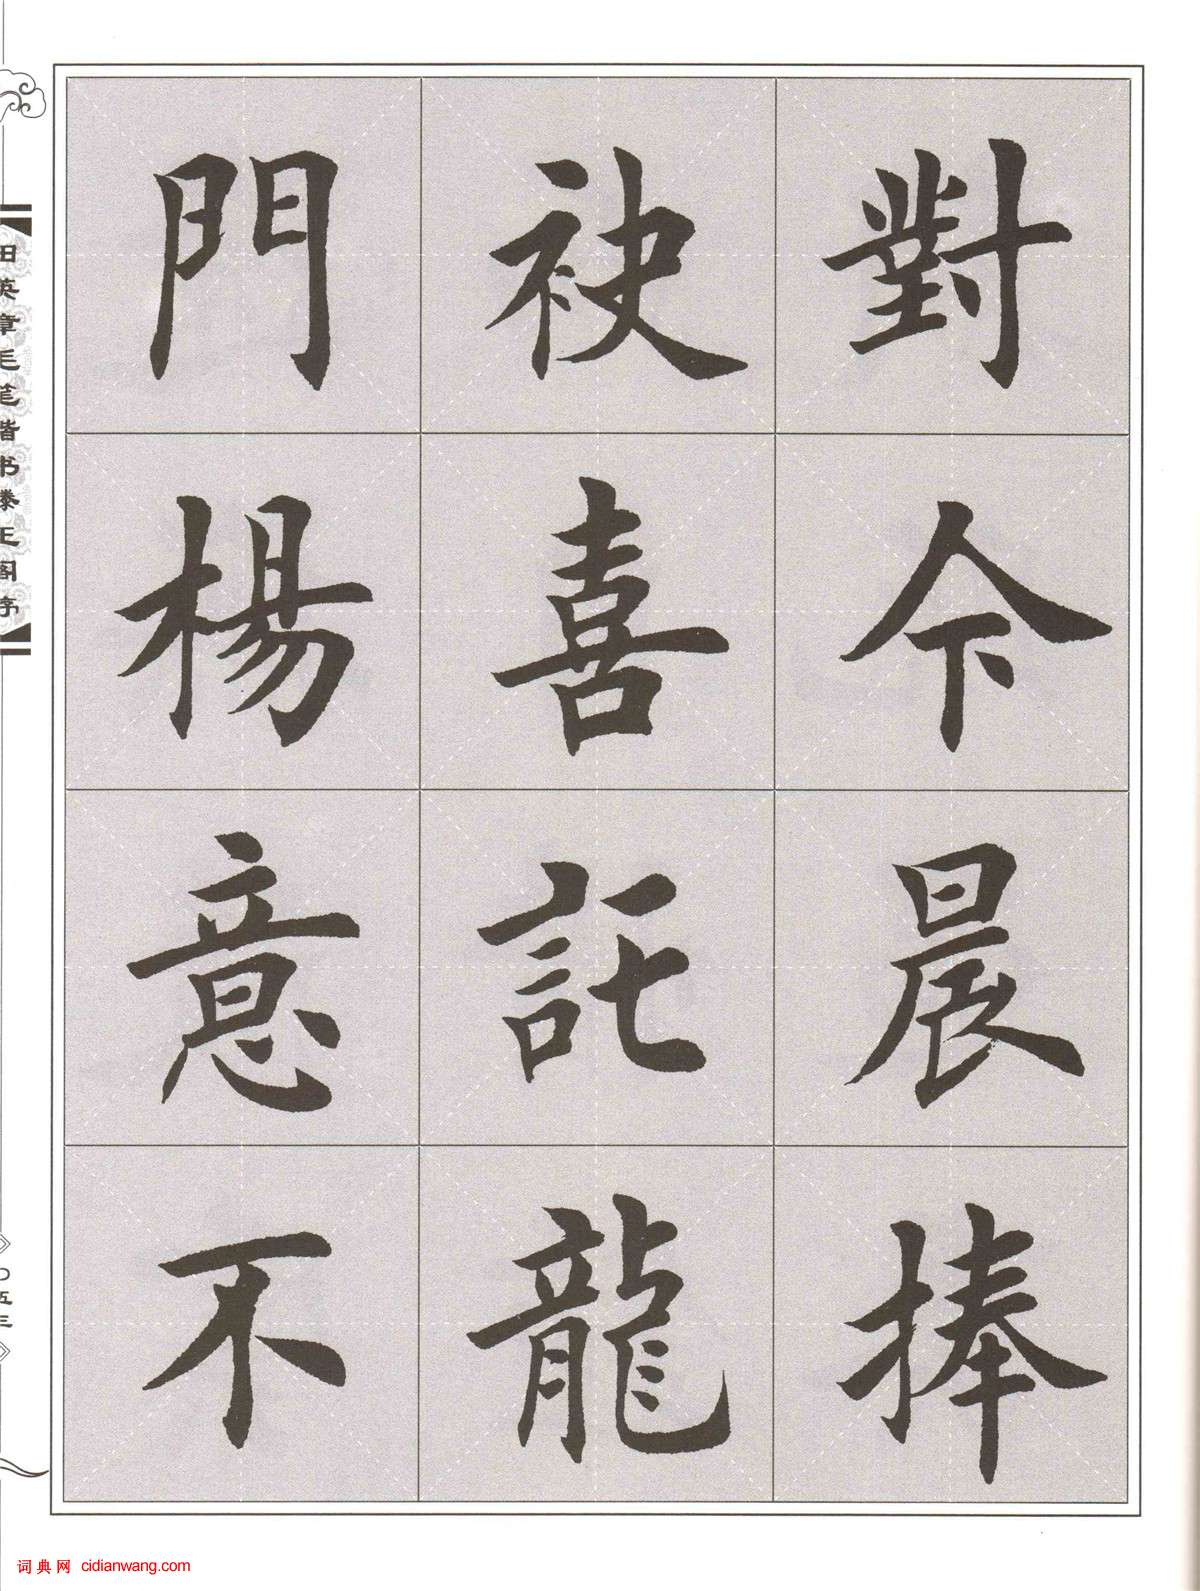 對今晨捧
袂喜託龍
門楊意不
田英章毛笔楷书滕王阁序
〇五三
词典网 cidianwang.com